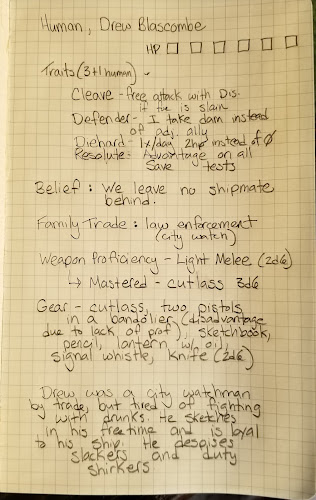 Human, Drew Blascombe
HP
Traits (3+1 human) -
Cleave - free attack with Dis.
if foe is slain
Defender - I take dam instead
of adj. ally
Diehard - 1x/day 2hp instead of Ø
Resolute: Advantage on all
Save tests
Belief: We leave no shipmate
behind.
Family Trade: law enforcement
(city watch)
Weapon Proficiency - Light Melee (2d6)
↳ Mastered - cutlass 3d6
Gear - cutlass, two pistols
in a bandolier (disadvantage
due to lack of prof), sketchbook,
pencil, lantern w/ oil,
signal whistle, knife (2d6)
Drew was a city watchman
by trade, but tired of fighting
with drunks. He sketches
in his free time and is loyal
to his ship. He despises
slackers and duty
shirkers